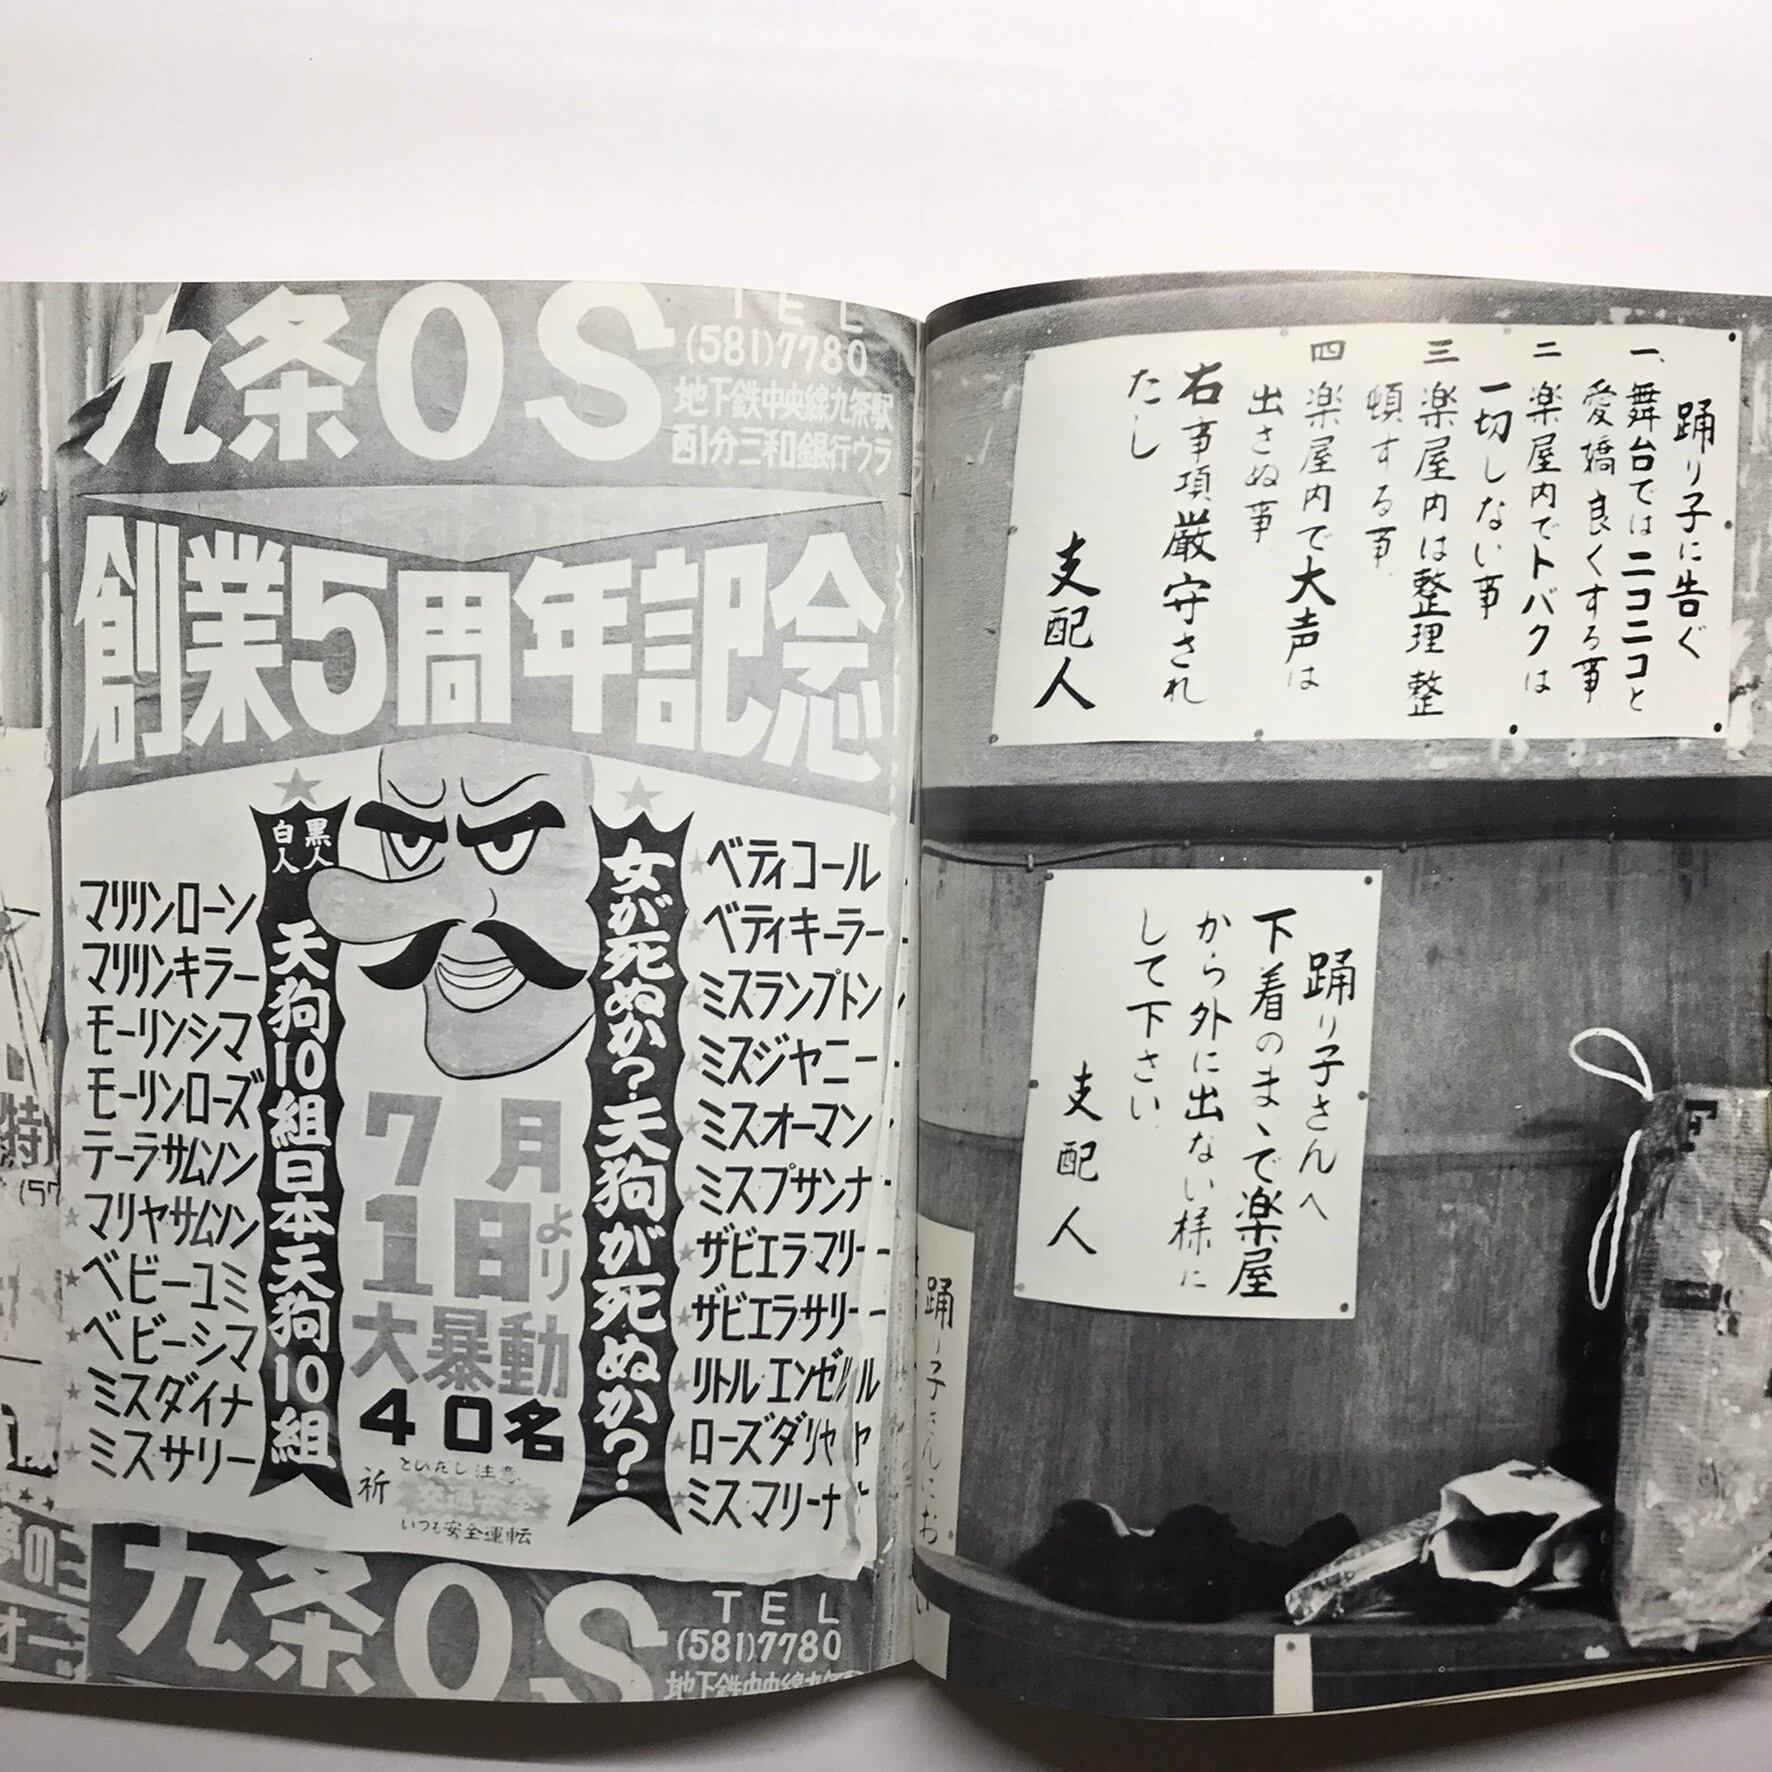 九条OS
TEL
(581)7780
地下鉄中央線九条駅
西1分三和銀行ウラ
創業5周年記念
黒人
白人
天狗10組日本天狗10組
女が死ぬか?天狗が死ぬか?
マリリンローン
マリリンキラー
モーリンシマ
モーリンローズ
テーラサムソン
マリヤサムソン
ベビーユミ
ベビーシマ
ミスダイナ
ミスサリー
7月
1日より
大暴動
40名
祈
とびだし注意
いつも安全運転
ベティコール
ベティキーラー
ミスランプトン
ミスジャニー
ミスオーマン
ミスプサンナ
ザビエラマリー
ザビエラサリー
リトルエンゼル
ローズダリヤ
ミスマリーナ
九条OS
TEL
(581)7780
地下鉄中央線九条駅
踊り子に告ぐ
一、舞台ではニコニコと
愛嬌良くする事
二 楽屋内でトバクは
一切しない事
三 楽屋内は整理整
頓する事
四 楽屋内で大声は
出さぬ事
右事項厳守され
たし
支配人
踊り子さんへ
下着のまゝで楽屋
から外に出ない様に
して下さい
支配人
踊り子さんにお